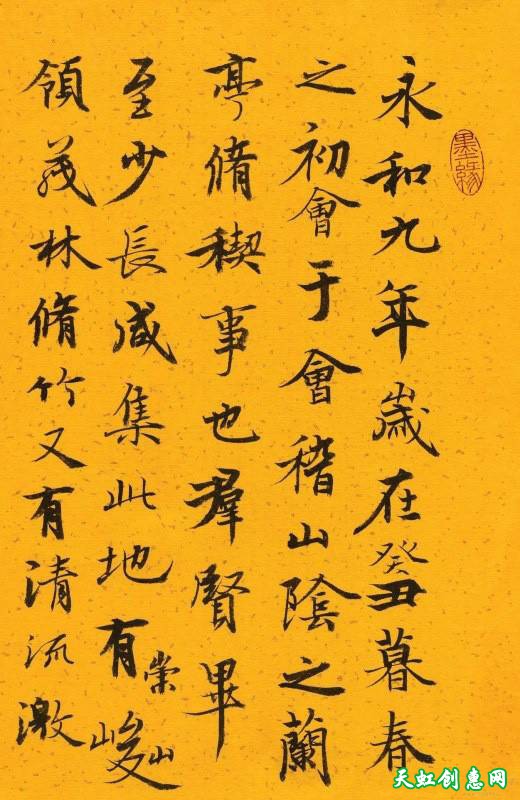 永和九年歲在癸丑暮春
之初會于會稽山陰之蘭
亭脩稧事也羣賢畢
至少長咸集此地有崇峻山
領茂林脩竹又有清流激
天虹创惠网